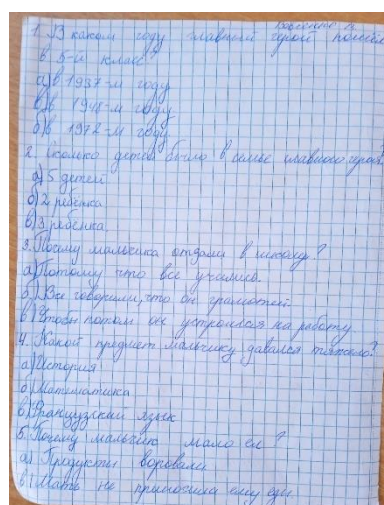 1. В каком году главный герой пошёл
в 5-й класс?
а) в 1937-м году
в) в 1948-м году
б) в 1972-м году
2. Сколько детей было в семье главного героя?
а) 5 детей
б) 2 ребёнка
в) 3 ребёнка
3. Почему мальчика отдали в школу?
а) Потому что все учились.
б) Все говорили, что он грамотей
в) Чтобы потом он устроился на работу.
4. Какой предмет мальчику давался тяжело?
а) История
б) Математика
в) Французский язык
5. Почему мальчик мало ел?
а) Продукты воровали
в) Мать не приносила ему еды